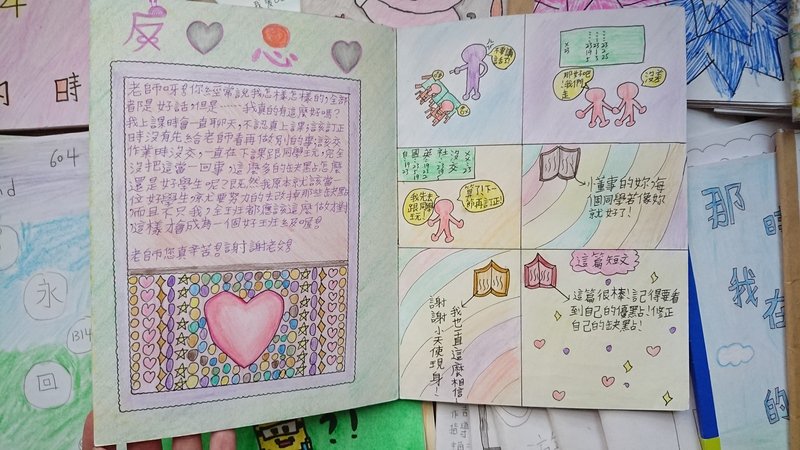 反思
老師呀!你經常說我怎樣怎樣的,全部
都是好話,但是……我真的有這麼好嗎?
我上課時會一直聊天,不認真上課;該訂正
時沒有先給老師看再做別的事;該交
作業時沒交,一直在下課跟同學玩,完全
沒把這當一回事,這麼多的缺點怎麼
還是好學生呢?既然我原本就該當一
位好學生,那也要努力的去改掉那些缺點
而且不只我,全班都應該這麼做才對
這樣才會成為一個好班級喔!
老師您真辛苦!謝謝老師
不要講
話了
那好吧
!我們
走
沒差
自 國 英 社 沒
交
我先去
跟同學
玩!
算了!下一
節再訂正!
懂事的妳,每
個同學若像妳
就好了!
我也一直這麼相信!
謝謝小天使現身!
這篇短文
這篇很棒!記得要看
到自己的優點!修正
自己的缺點!
時
604
nd
永
1314
回
?!
那
我在
的